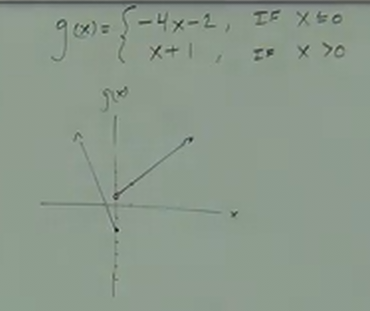 g(x) = { -4x-2, IF x ≤ 0
x+1, IF x > 0
g(x)
x